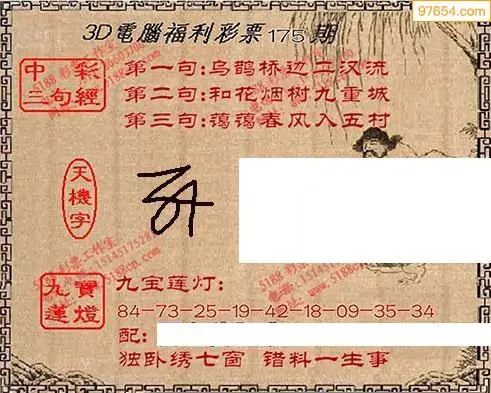 97654.com
3D電腦福利彩票175期
中彩
三句經
第一句:乌鹊桥边二汉流
第二句:和花烟树九重城
第三句:蔼蔼春风入五村
天機字
九寶
蓮燈
九宝莲灯:
84-73-25-19-42-18-09-35-34
配:
独卧绣七窗 错料一生事